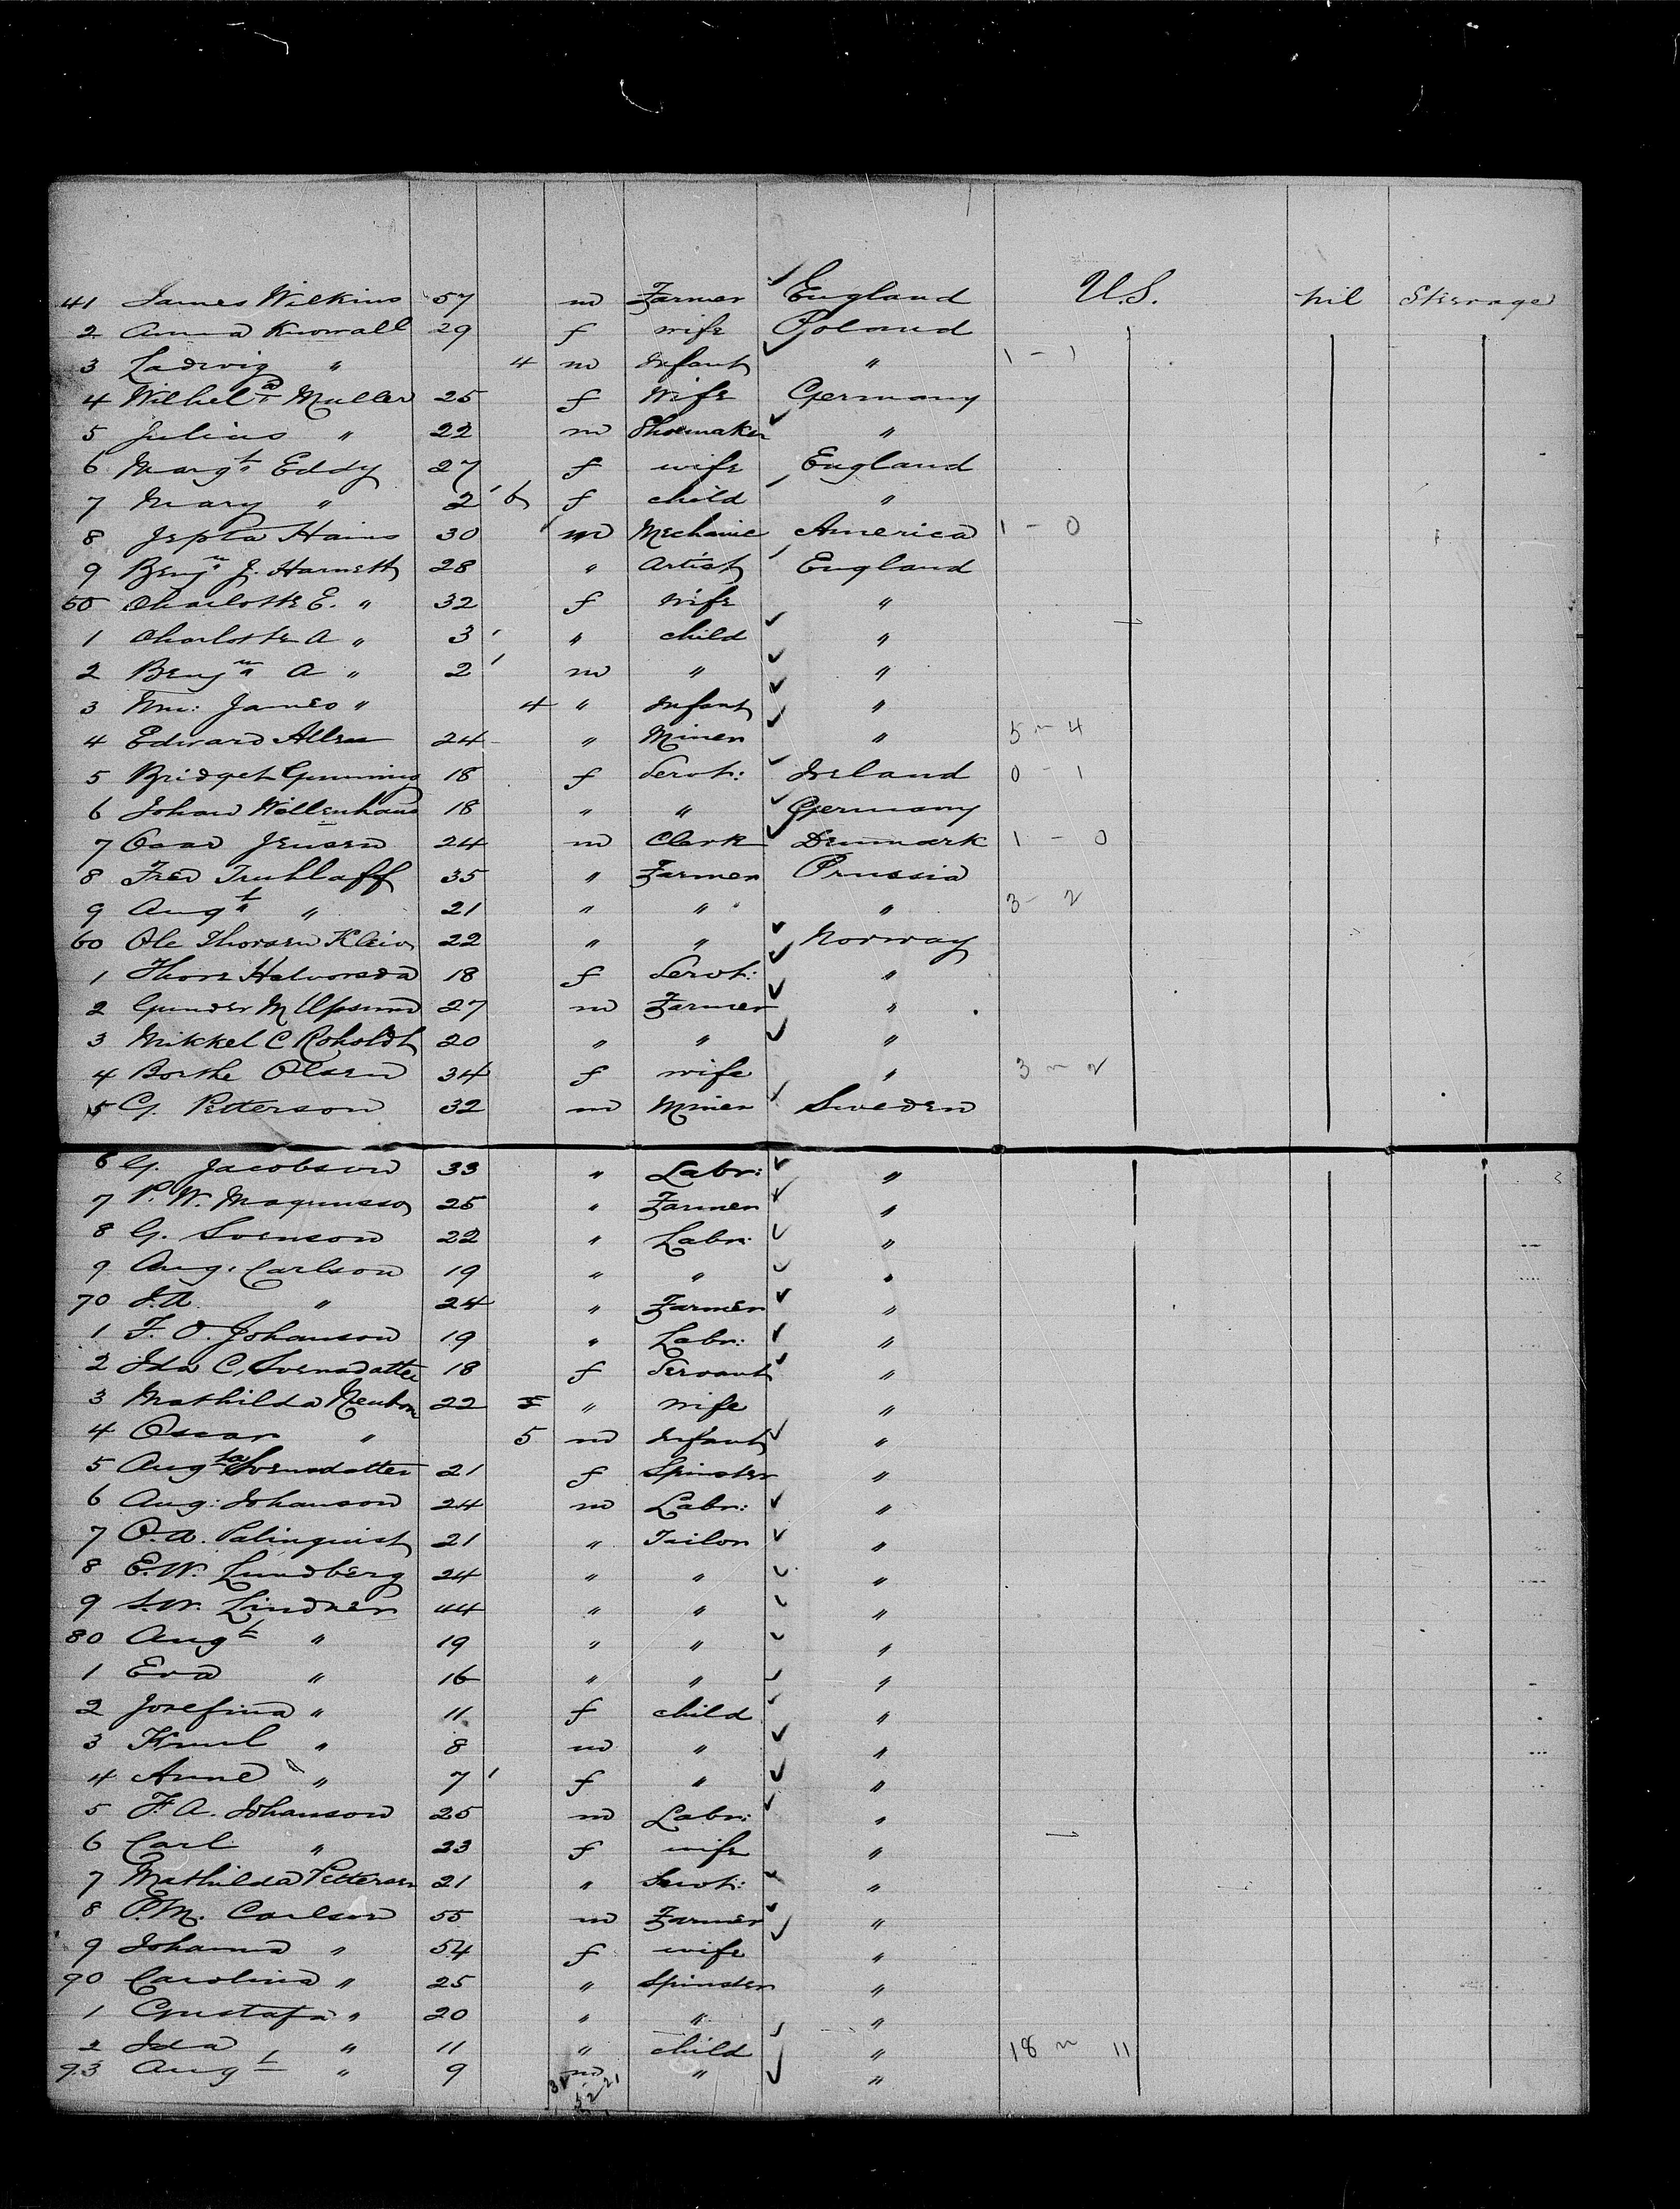 41 James Wilkins 57 m Farmer England U.S. nil Steerage
2 Anna Knowall 29 f wife Poland
3 Ladwig " 4 m Infant " 1 - 1
4 Wilhel a Muller 25 f Wife Germany
5 Julius " 22 m Shoemaker "
6 Margt Eddy 27 f wife England
7 Mary " 2 6 f child "
8 Jepta Hains 30 m Mechanic America 1 - 0
9 Benjn J. Harnett 28 " Artist England
50 Charlotte E. " 32 f Wife "
1 Charlotte A " 3 " child "
2 Benjn A " 2 m " "
3 Wm: James " 4 " Infant "
4 Edward Allen 24 " Miner " 5 - 4
5 Bridget Gunning 18 f Servt: Ireland 0 - 1
6 Johan Wellenhaus 18 " " Germany
7 Jensen 24 m Clerk Denmark 1 - 0
8 Fred Truhlaff 35 " Farmer Prussia
9 Augt " 21 " " " 3 - 2
60 Ole Thorsen Kleiv 22 " " Norway
1 Thore Halvorsda 18 f Servt: "
2 Gunder M 27 m Farmer "
3 Mikkel C Roholdt 20 " " "
4 Borthe Olsen 34 f wife " 3 - 2
5 G. Petterson 32 m Miner Sweden
6 G. Jacobson 33 " Labr: "
7 P. W. Magnusson 25 " Farmer "
8 G. Svenson 22 " Labr: "
9 Aug: Carlson 19 " " "
70 J. A. " 24 " Farmer "
1 F. O. Johanson 19 " Labr: "
2 Ida C. Svensdatter 18 f Servant "
3 Mathilda 22 " wife "
4 Oscar " 5 m Infant "
5 Augta Svensdatter 21 f Spinster "
6 Aug: Johanson 24 m Labr: "
7 O. A. Palinquist 21 " Tailor "
8 E. W. Lundberg 24 " " "
9 S. W. Lindner 44 " " "
80 Augt " 19 " " "
1 Eva " 16 " " "
2 Josefina " 11 f child "
3 Knul " 8 m " "
4 Anne " 7 f " "
5 F. A. Johanson 25 m Labr: "
6 Carl " 23 f wife "
7 Mathilda Petterson 21 " Servt: "
8 P. M. Carlson 55 m Farmer "
9 Johanna " 54 f wife "
90 Carolina " 25 " Spinster "
1 Gustafa " 20 " " "
2 Ida " 11 " child " 18 - 11
93 Augt " 9 m " "